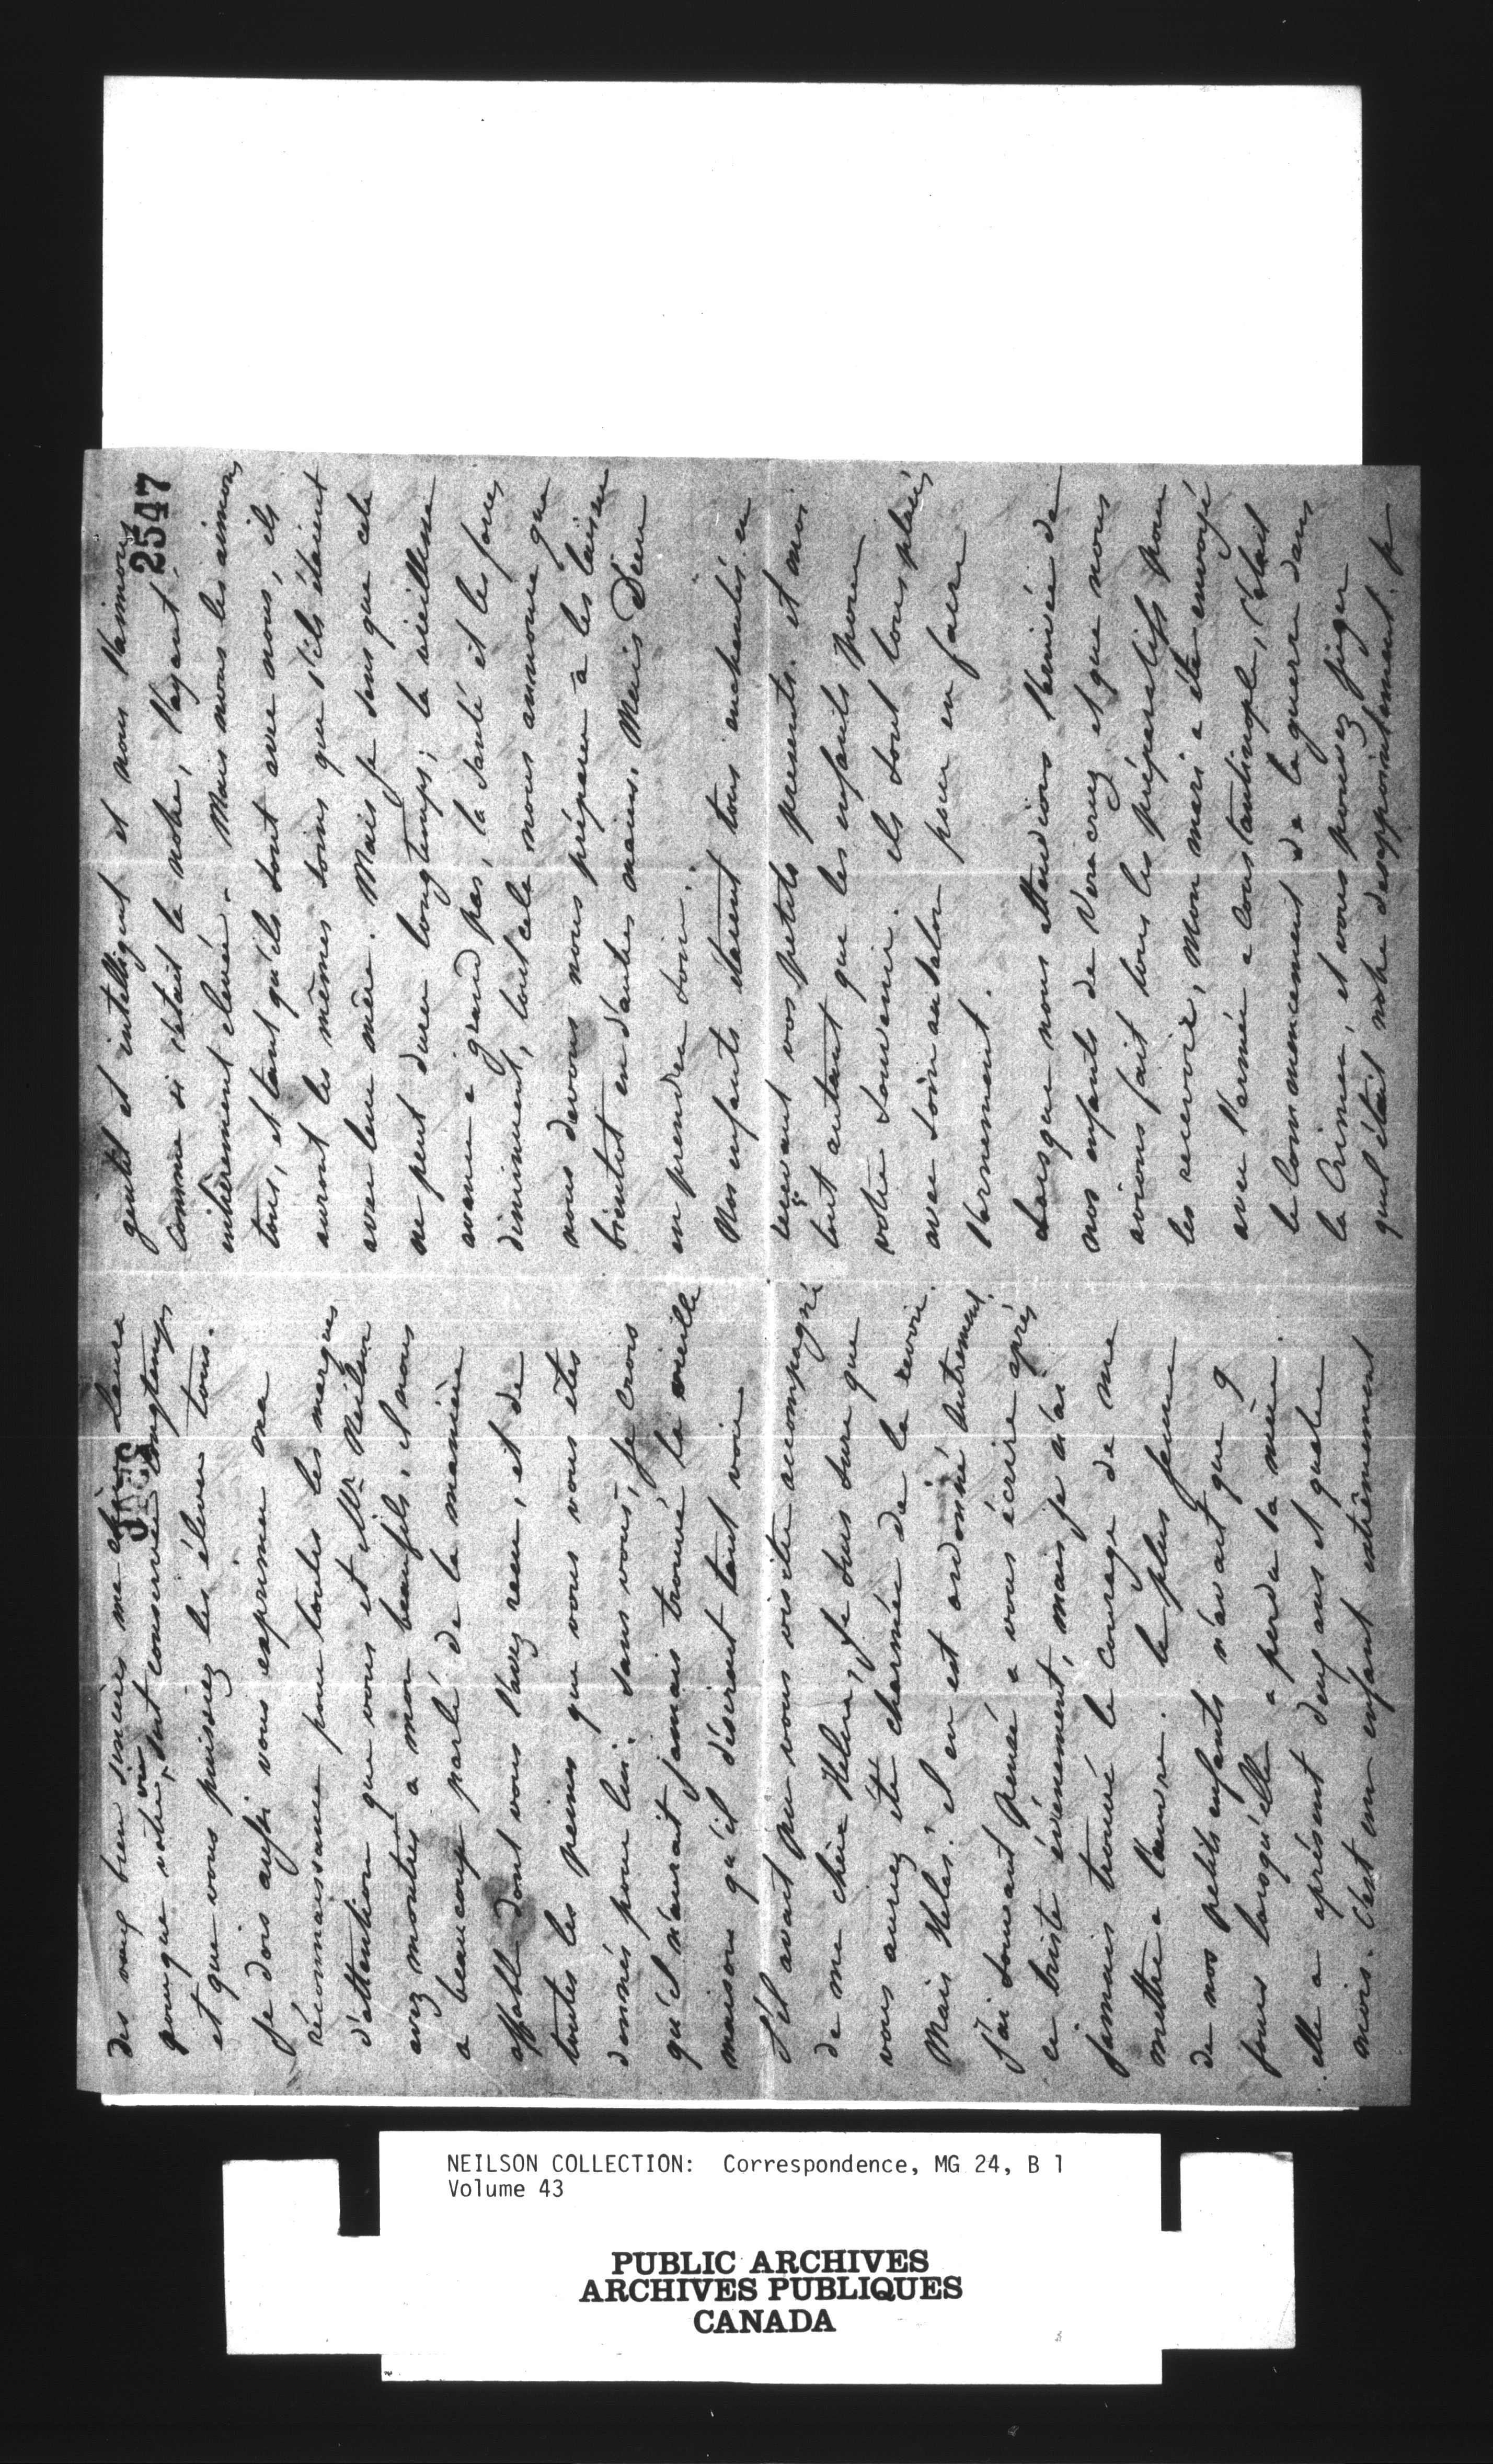 des vœux bien sincères ma chère Laura
pourque votre vie soit conservée longtemps
et que vous puissiez les élever tous.
Je dois aussi vous exprimer ma
réconnaissance pour toutes les marques
d'attention que vous et Mr Neilson
avez montrés a mon beaufils, il nous
a beaucoup parlé de la manière
affable dont vous l'avez recu, et de
toutes les peines que vous vous êtes
donnés pour lui. Sans vous, je crois
qu'il n'aurait jamais trouvé la vieille
maison qu'il désirant tant voir
S'il avait pu vous visiter accompagné
de ma chère Helena, je suis sure que
vous auriez été charmée de la revoir.
Mais Helas! il en est ordonné autrement.
J'ai souvent pensé a vous écrire après
ce triste évènement, mais je n'ai
jamais trouvé le courage de me
mettre a l'œuvre. Le plus jeune
de nos petits enfants n'avait que 9
jours lorsqu'elle a perdu sa mère.
elle a aprésent deux ans et quatre
mois. C'est un enfant extrêmement
2547
gentil et intelligent et nous l'aimons
comme si c'était le notre, l'ayant
entièrement élevée. Mais nous les aimons
tous, et tant qu'ils sont avec nous, ils
auront les mêmes soins que s'ils étaient
avec leur mère. Mais je sens que cela
ne peut durer longtemps; la vieillesse
avance a grand pas, la santé et les forces
diminuent, tout cela nous annonce que
nous devons nous préparer a les laisser
bientot en d'autres mains. Mais Dieu
en prendra soin.
Nos enfants étaient tous enchantés en
recevant vos petits presents. et moi
tout autant que les enfants pour
votre souvenir. ils sont tous placés
avec soin au salon pour en faire
l'ornement.
Lorsque nous attendions l'arrivée de
nos enfants de Vera cruz et que nous
avions fait tous les préparatifs pour
les recevoir, Mon mari a été envoyé
avec l'armée a Constantinople, c'était
le commencement de la guerre dans
la Crimea, et vous pouvez juger
quel était notre desappointement. je
NEILSON COLLECTION: Correspondence, MG 24, B 1
Volume 43
PUBLIC ARCHIVES
ARCHIVES PUBLIQUES
CANADA